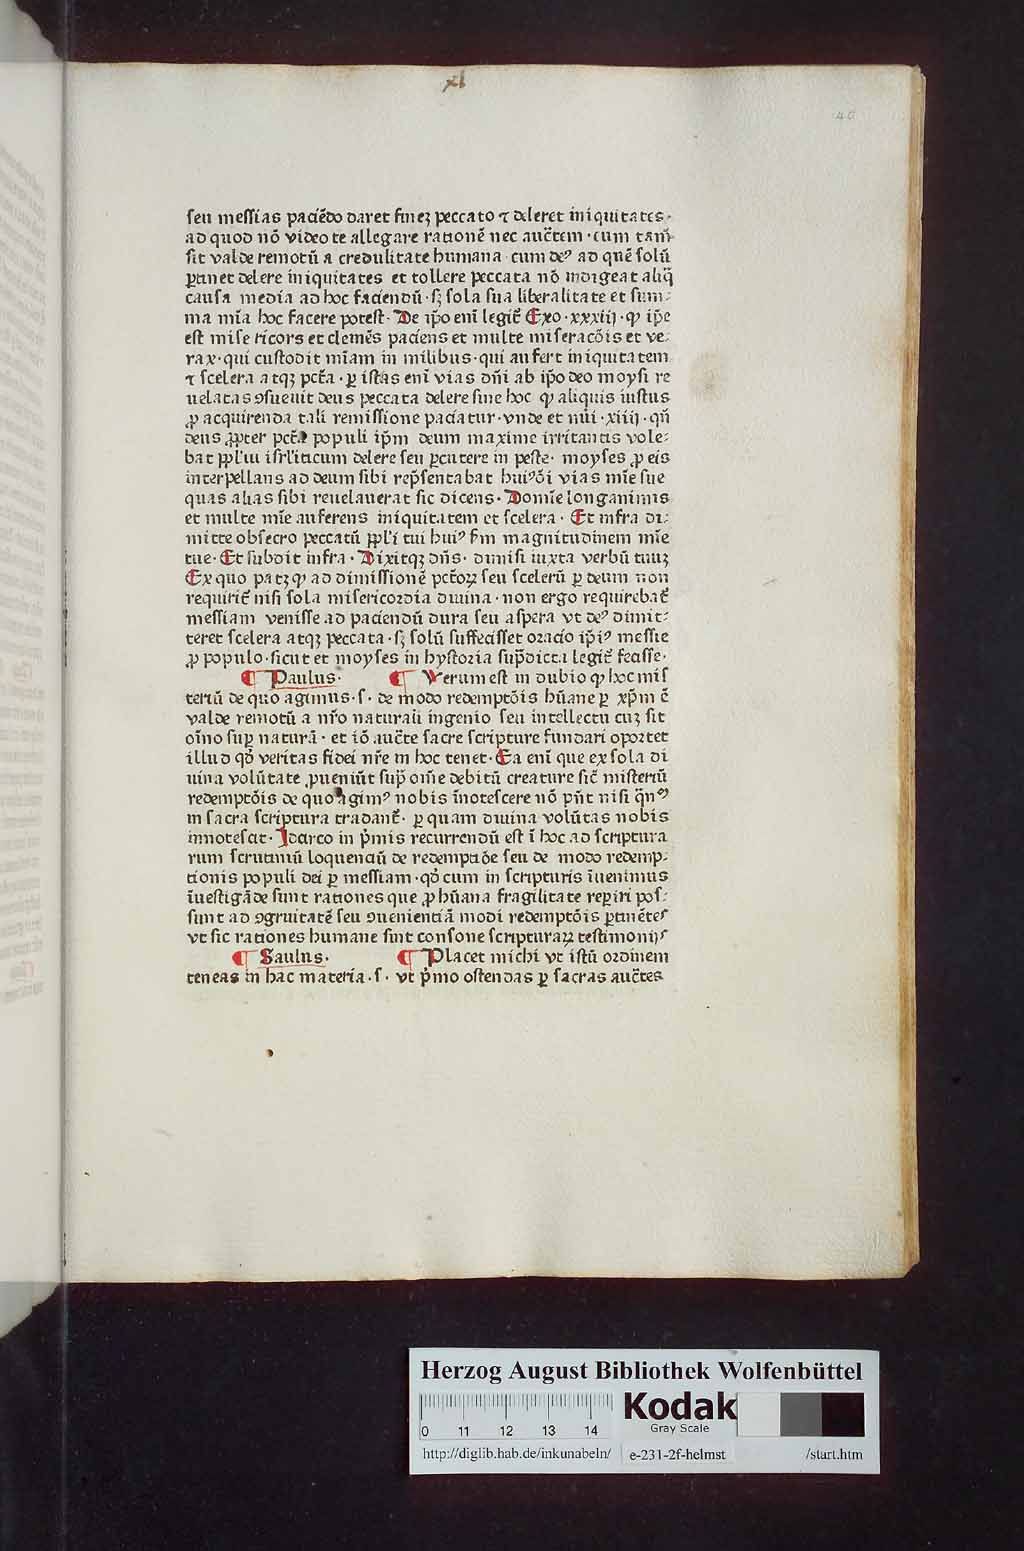 xl
40
seu messias paciēdo daret finez peccato ⁊ deleret iniquitates·
ad quod nō video te allegare rationē nec auc̄tem· cum tam̄
sit valde remotū a credulitate humana· cum deꝰ ad quē solū
ꝑtinet delere iniquitates et tollere peccata nō indigeat aliq̄
causa media ad hoc faciendū· sꝫ sola sua liberalitate et sum⸗
ma mīa hoc facere potest· De ip̄o eni legit̄ Exo·xxxiij· ꝙ ip̄e
est misericors et clemēs paciens et multe miseracōis et ve⸗
rax· qui custodit mīam in milibus· qui aufert iniquitatem
⁊ scelera atqꝫ pct̄a· ꝑ istas eni vias dn̄i ab ip̄o deo moysi re
uelatas ꝯsueuit deus peccata delere sine hoc ꝙ aliquis iustus
ꝓ acquirenda tali remissione paciatur· vnde et nūi·xiiij· qn̄
deus ꝓpter pct̄a populi ip̄m deum maxime irritantis vole⸗
bat ppl'm isrl'iticum delere seu ꝑcutere in peste· moyses ꝓ eis
interpellans ad deum sibi rep̄sentabat huiꝰōi vias mīe sue
quas alias sibi reuelauerat sic dicens· Domīe longanimis
et multe mīe auferens iniquitatem et scelera· Et infra di⸗
mitte obsecro peccatū ppl'i tui huiꝰ s̄m magnitudinem mīe
tue· Et subdit infra· Dixitqꝫ dn̄s· dimisi iuxta verbū tuuꝫ
Ex quo patꝫ ꝙ ad dimissionē pctōꝝ seu scelerū ꝑ deum non
requirit̄ nisi sola misericordia diuina· non ergo requirebat̄
messiam venisse ad paciendū dura seu aspera vt deꝰ dimit⸗
teret scelera atqꝫ peccata· sꝫ solū suffecisset oracio ip̄iꝰ messie
ꝓ populo· sicut et moyses in hystoria sup̄dicta legit̄ fecisse·
¶ Paulus· ¶ Verum est in dubio ꝙ hoc mis
teriū de quo agimus·s· de modo redemptōis hūane ꝑ xp̄m ē
valde remotū a nr̄o naturali ingenio seu intellectu cuꝫ sit
oīno suꝑ naturā· et iō auc̄te sacre scripture fundari oportet
illud qd̛ veritas fidei nr̄e in hoc tenet· Ea eni que ex sola di
uina volūtate ꝓueniūt sup̄ om̄e debitū creature sic̄ misteriū
redemptōis de quo agimꝰ nobis īnotescere nō pn̄t nisi q̄nꝰ
in sacra scriptura tradant̄· ꝑ quam diuina volūtas nobis
innotescit· Idarco in p̄mis recurrendū est ī hoc ad scriptura
rum scrutiniū loquenciū de redemptiōe seu de modo redemp⸗
tionis populi dei ꝑ messiam· qd̛ cum in scripturis īuenimus
īuestigāde sunt rationes que ꝓ hūana fragilitate reꝑiri pos⸗
sunt ad ꝯgruitatē seu ꝯuenientiā modi redemptōis ꝑtinētes
vt sic rationes humane sint consone scripturaꝝ testimonijs
¶ Saulus· ¶ Placet michi vt istū ordinem
teneas in hac materia·s· vt p̄mo ostendas ꝑ sacras auc̄tes
Herzog August Bibliothek Wolfenbüttel
0 11 12 13 14
Kodak
Gray Scale
http://diglib.hab.de/inkunabeln/ e-231-2f-helmst /start.htm